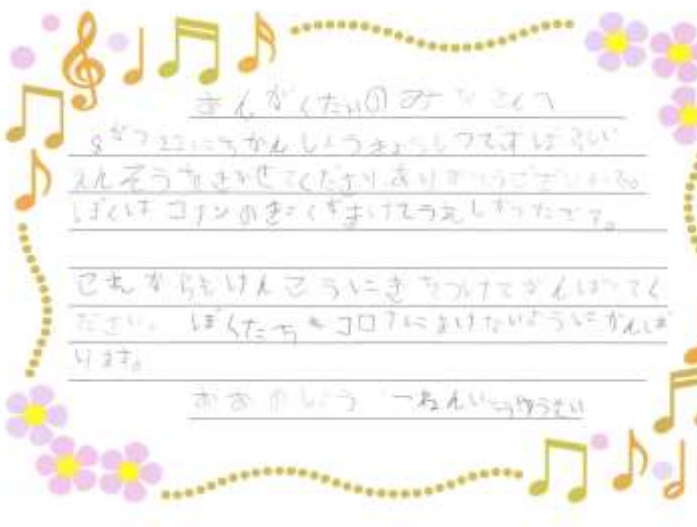 おんがくたいのみなさんへ
8がつ22にちかんしょうきょうしつですばらしい
えんそうをきかせてくださりありがとうございました。
ぼくはコナンのきょくがきけてうれしかったです。
これからもけんこうにきをつけてがんばってく
ださい。ぼくたちもコロナにまけないようにがんば
ります。
おおのしょう 一ねん